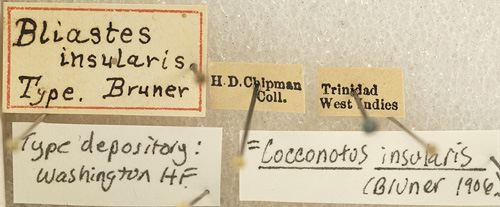 Bliastes
insularis.
Type. Bruner
H.D. Chipman
Coll.
Trinidad
West Indies
Type depository:
Washington HF.
=Cocconotus insularis
(Bruner 1906)